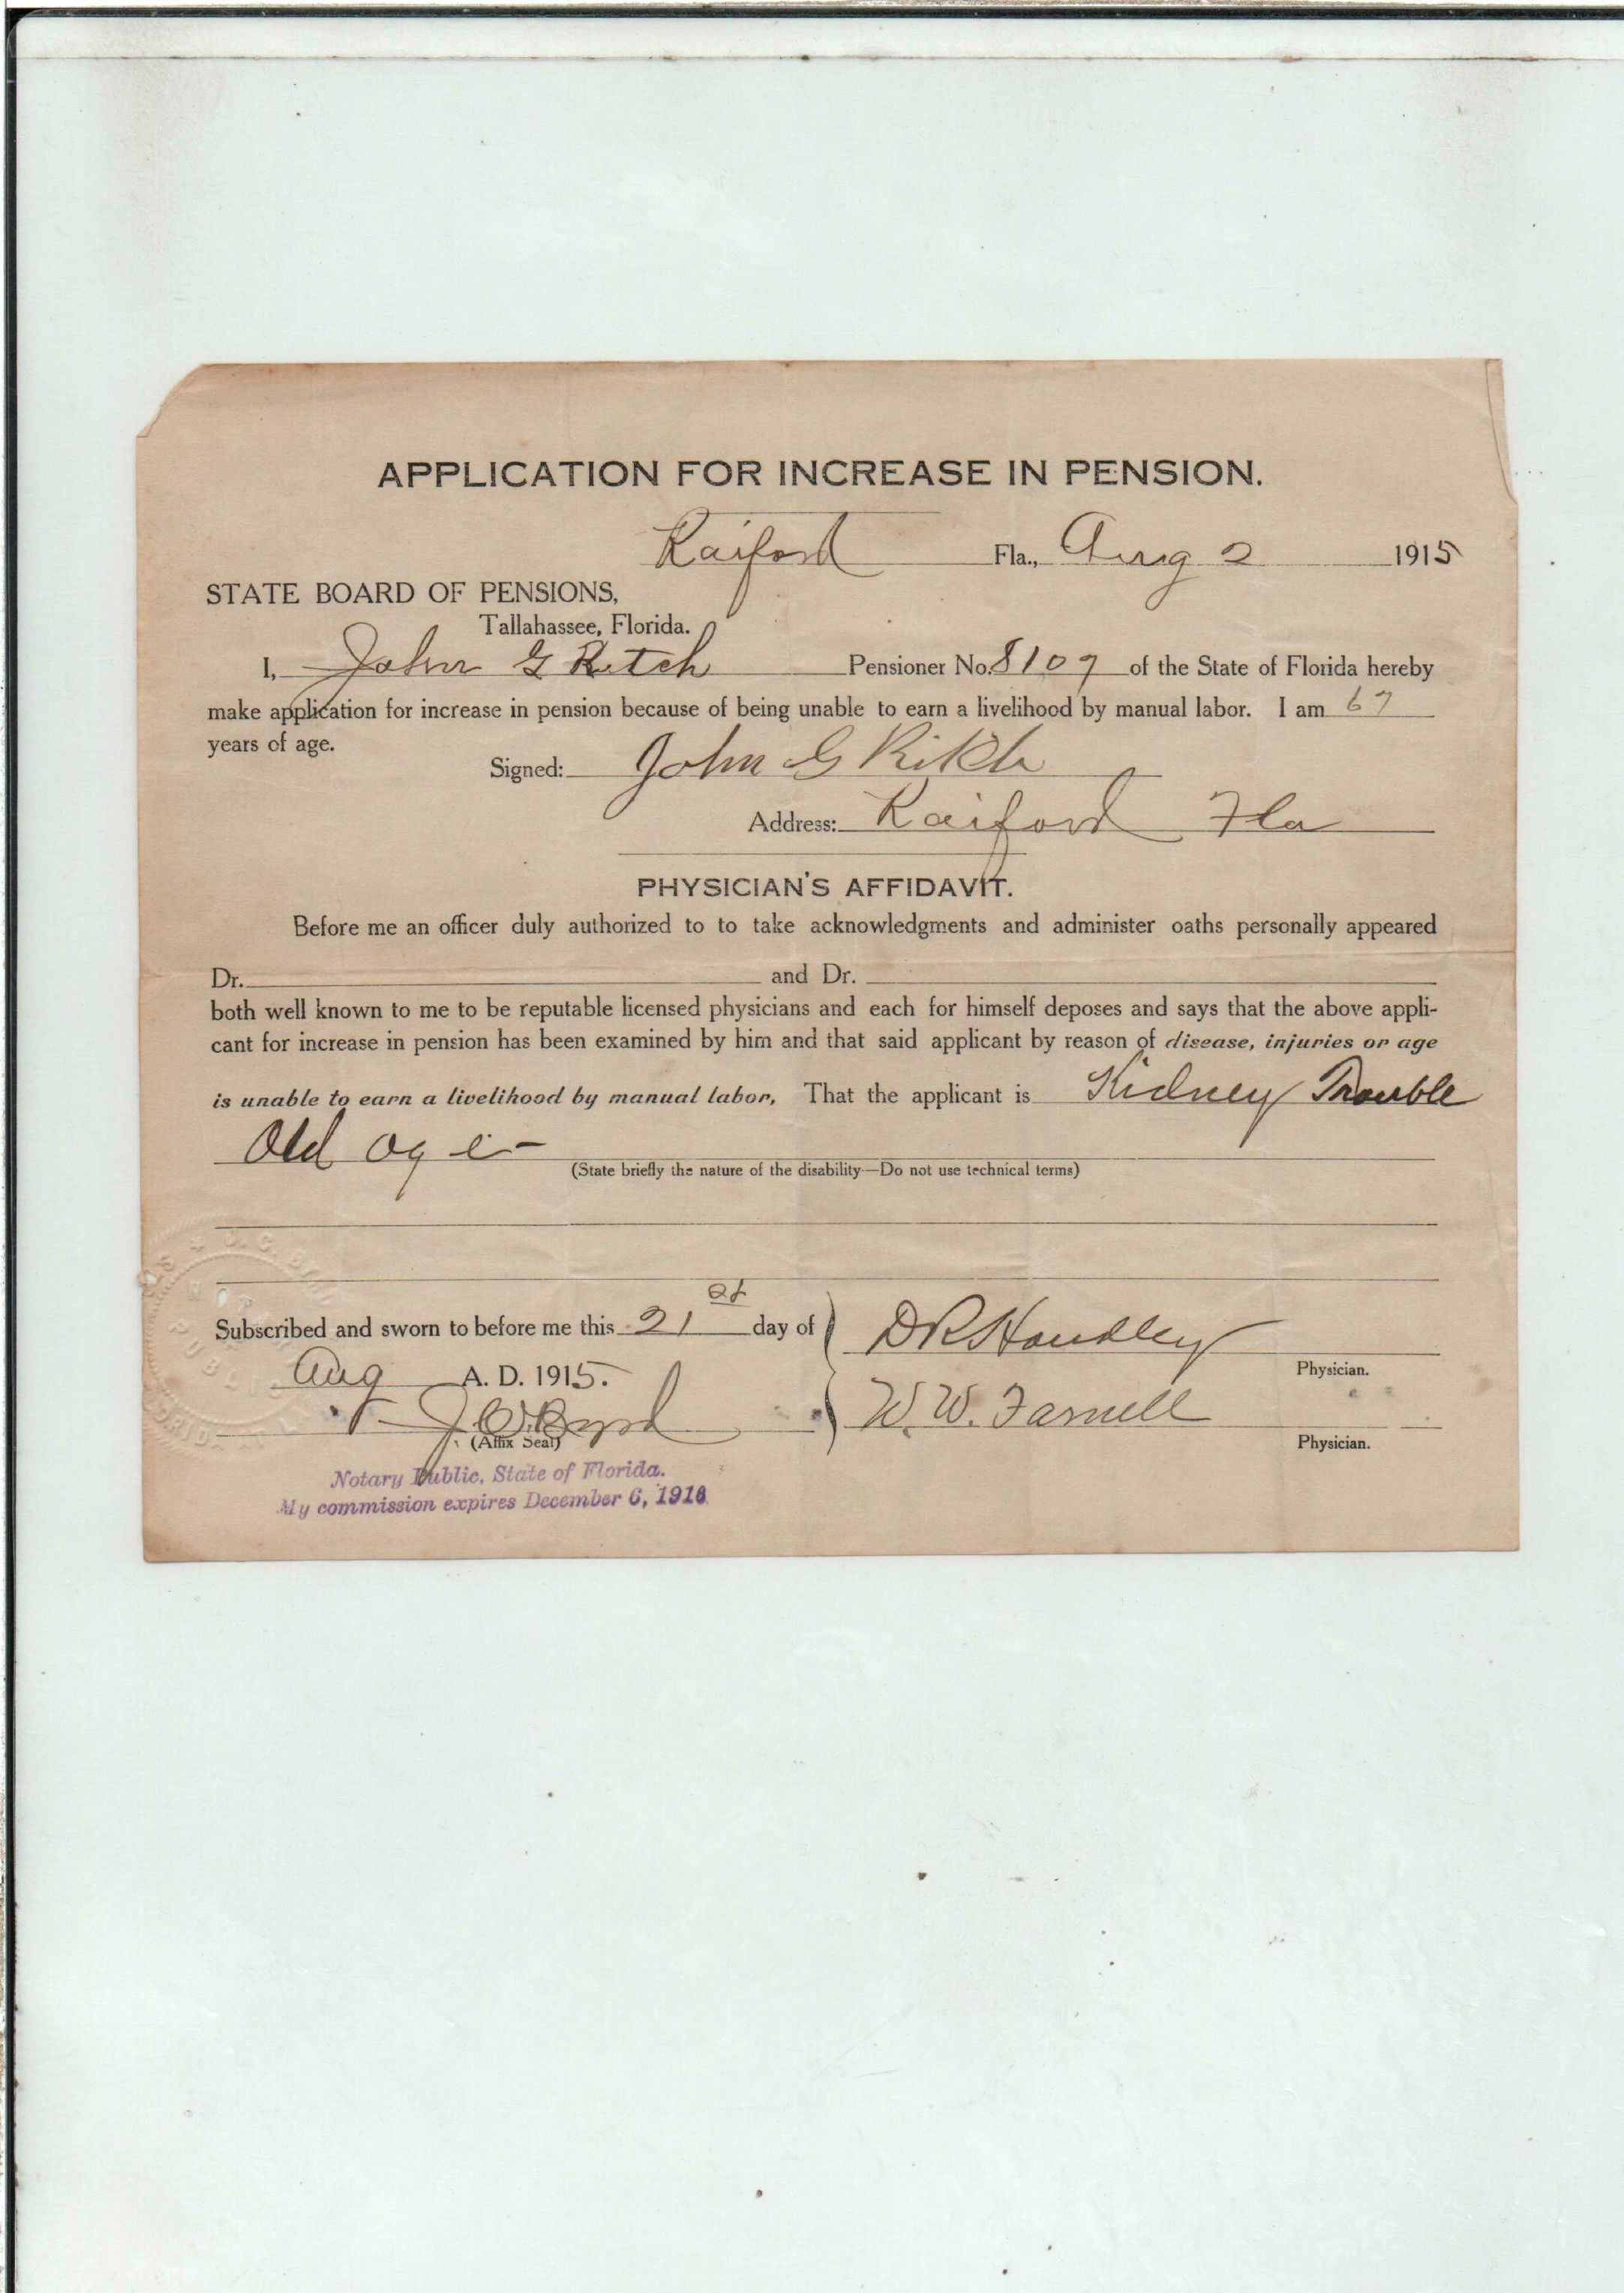 APPLICATION FOR INCREASE IN PENSION.
Raiford Fla., Aug 2 1915
STATE BOARD OF PENSIONS,
Tallahassee, Florida.
I, John G Ritch Pensioner No. 8109 of the State of Florida hereby
make application for increase in pension because of being unable to earn a livelihood by manual labor. I am 67
years of age.
Signed: John G Ritch
Address: Raiford Fla
PHYSICIAN'S AFFIDAVIT.
Before me an officer duly authorized to to take acknowledgments and administer oaths personally appeared
Dr. and Dr.
both well known to me to be reputable licensed physicians and each for himself deposes and says that the above appli-
cant for increase in pension has been examined by him and that said applicant by reason of disease, injuries or age
is unable to earn a livelihood by manual labor, That the applicant is Kidney Trouble
Old age -
(State briefly the nature of the disability—Do not use technical terms)
Subscribed and sworn to before me this 21st day of
Aug A. D. 1915.
D R Handley
Physician.
J. C. Byrd
(Affix Seal)
W. W. Farnell
Physician.
Notary Public, State of Florida.
My commission expires December 6, 1918.